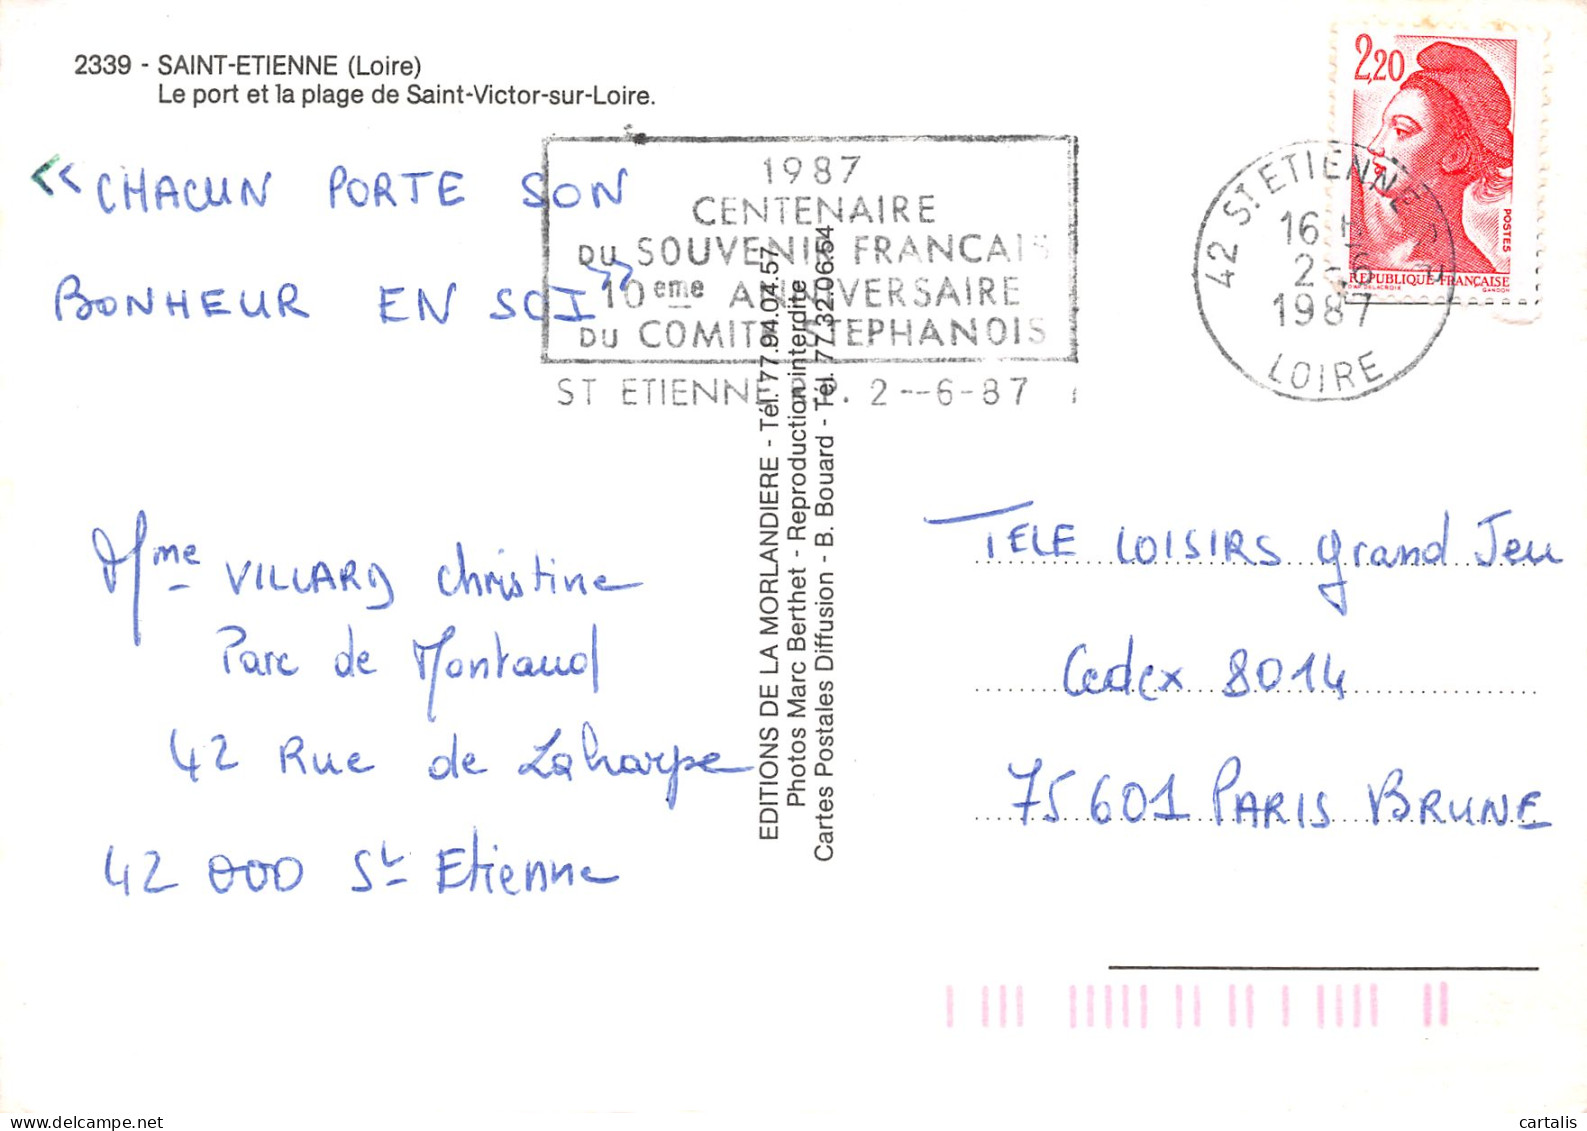 2339 - SAINT-ETIENNE (Loire)
Le port et la plage de Saint-Victor-sur-Loire.
<< CHACUN PORTE SON
BONHEUR EN SOI >>
1987
CENTENAIRE
DU SOUVENIR FRANCAIS
10eme ANNIVERSAIRE
DU COMITE STEPHANOIS
ST ETIENNE 2--6-87
42 ST ETIENNE
16 H
2-6
1987
LOIRE
2,20
POSTES
REPUBLIQUE FRANÇAISE
GANDON
Mme VILLARD Christine
Parc de Montaud
42 Rue de Laharpe
42 000 St Etienne
EDITIONS DE LA MORLANDIERE - Tél. 77.94.04.57
Photos Marc Berthet - Reproduction interdite
Cartes Postales Diffusion - B. Bouard - Tél. 77.32.06.54
TELE LOISIRS grand Jeu
Cedex 8014
75601 PARIS BRUNE
delcampe.net
cartalis